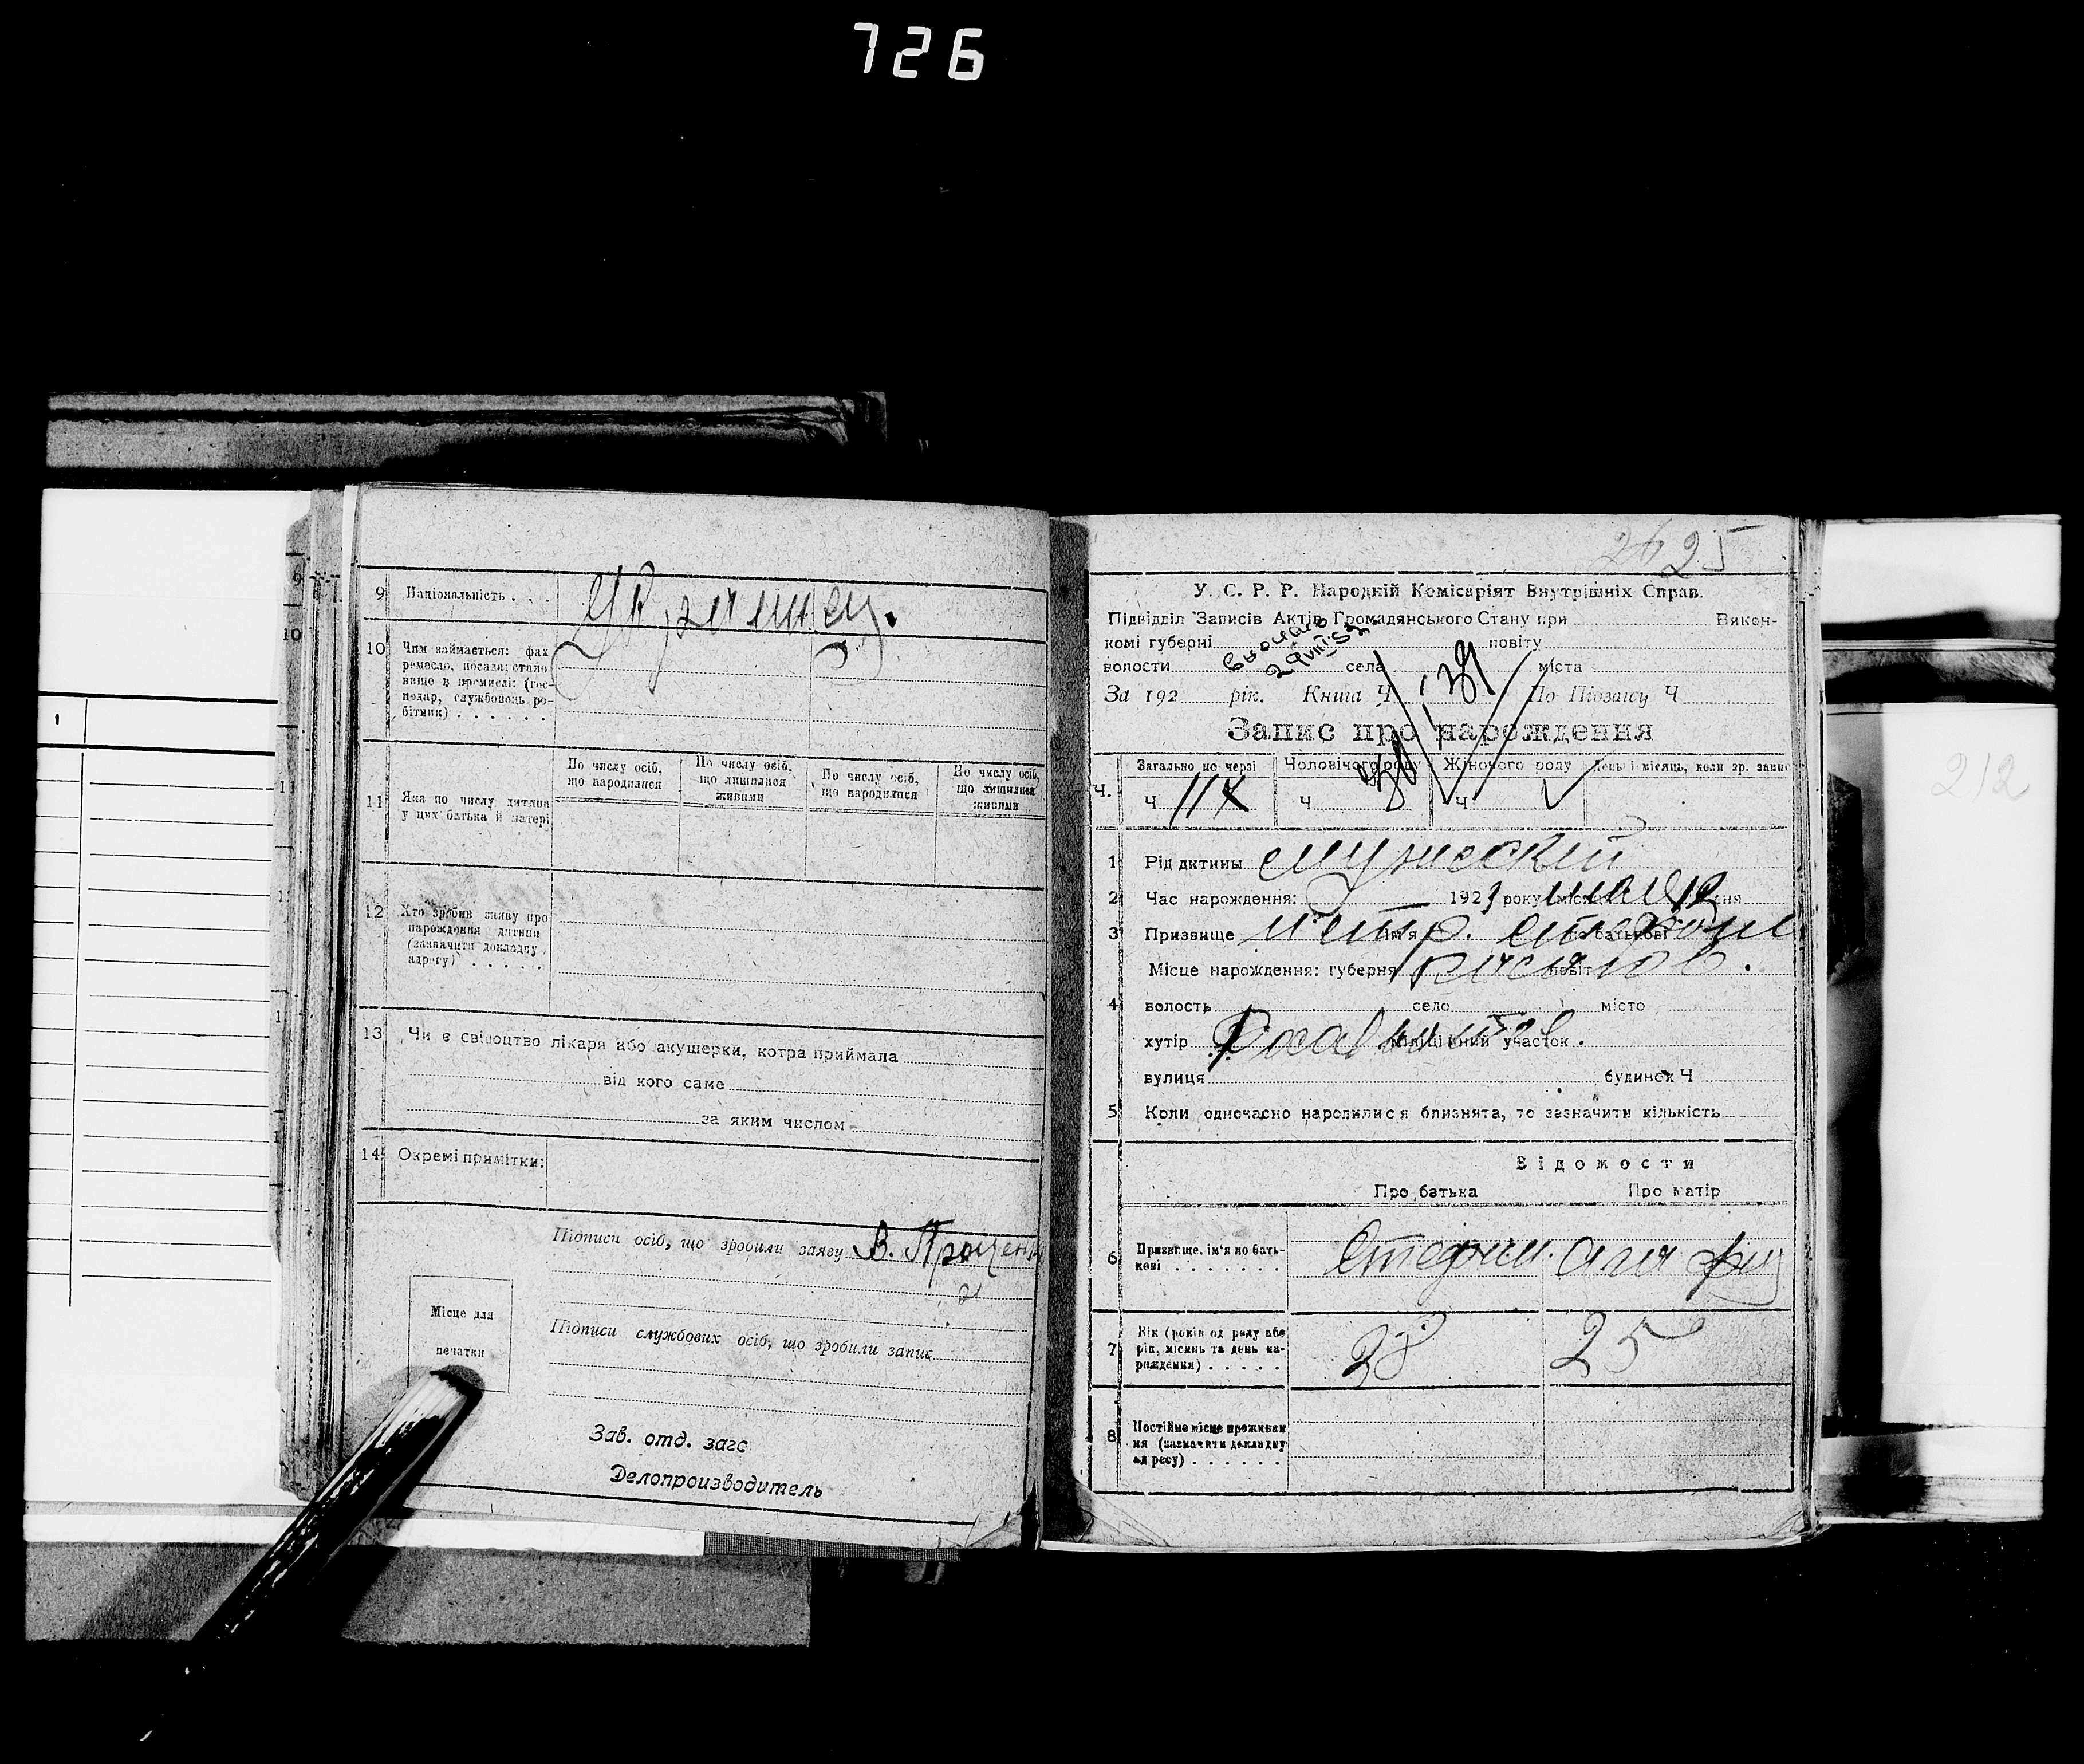 726
9 Національність . . . Украинец.
10 Чим займається: фах
ремесло, посада; стано
вище в промислі: (гос-
подар, службовець ро-
бітник) . . . . . .
11 Яка по числу дитина
у цих батька й матері
По числу осіб,
що народилися
По числу осіб,
що лишилися
живими
По числу осіб,
що народилися
По числу осіб,
що лишилися
живими
12 Хто зробив заяву про
нарождення дитини
(зазначити докладну
адресу) . . . . .
13 Чи є свідоцтво лікаря або акушерки, котра приймала
від кого саме
за яким числом
14 Окремі примітки:
Підписи осіб, що зробили заяву В. Проценк
Місце для
печатки
Підписи службових осіб, що зробили запис
Зав. отд. загс
Делопроизводитель
9
10
11
1
26 25
У. С. Р. Р. Народкій Комісаріят Внутрішніх Справ.
Підвідділ Записів Актів Громадянського Стану при Викон-
комі губерні повіту
волости села міста
За 192 рік. Книга Ч По Піозаису Ч
39
Запис про нарождення
Загально по черзі Чоловічого роду Жіночого роду День і місяць, коли зр. запис
Ч. Ч Ч Ч
1 Рід дктини мужеский
2 Час нарождення: 1923 року місяця дня
3 Призвище Петр. ім'я по батькові
Місце нарождення: губерня повіт
4 волость село місто
хутір поліційний участок
вулиця будинок Ч
5 Коли одночасно народилися близнята, то зазначити кількість
Відомости
Про батька Про матір
6 Призвище. ім'я по бать-
кові . . . . . . . Стефан.
7 Вік (років од роду або
рік, місяць та день на-
рождення) . . . . . 28 25
8 Постійне місце проживан
ня (зазначити докладну
адресу) . . . . . .
212